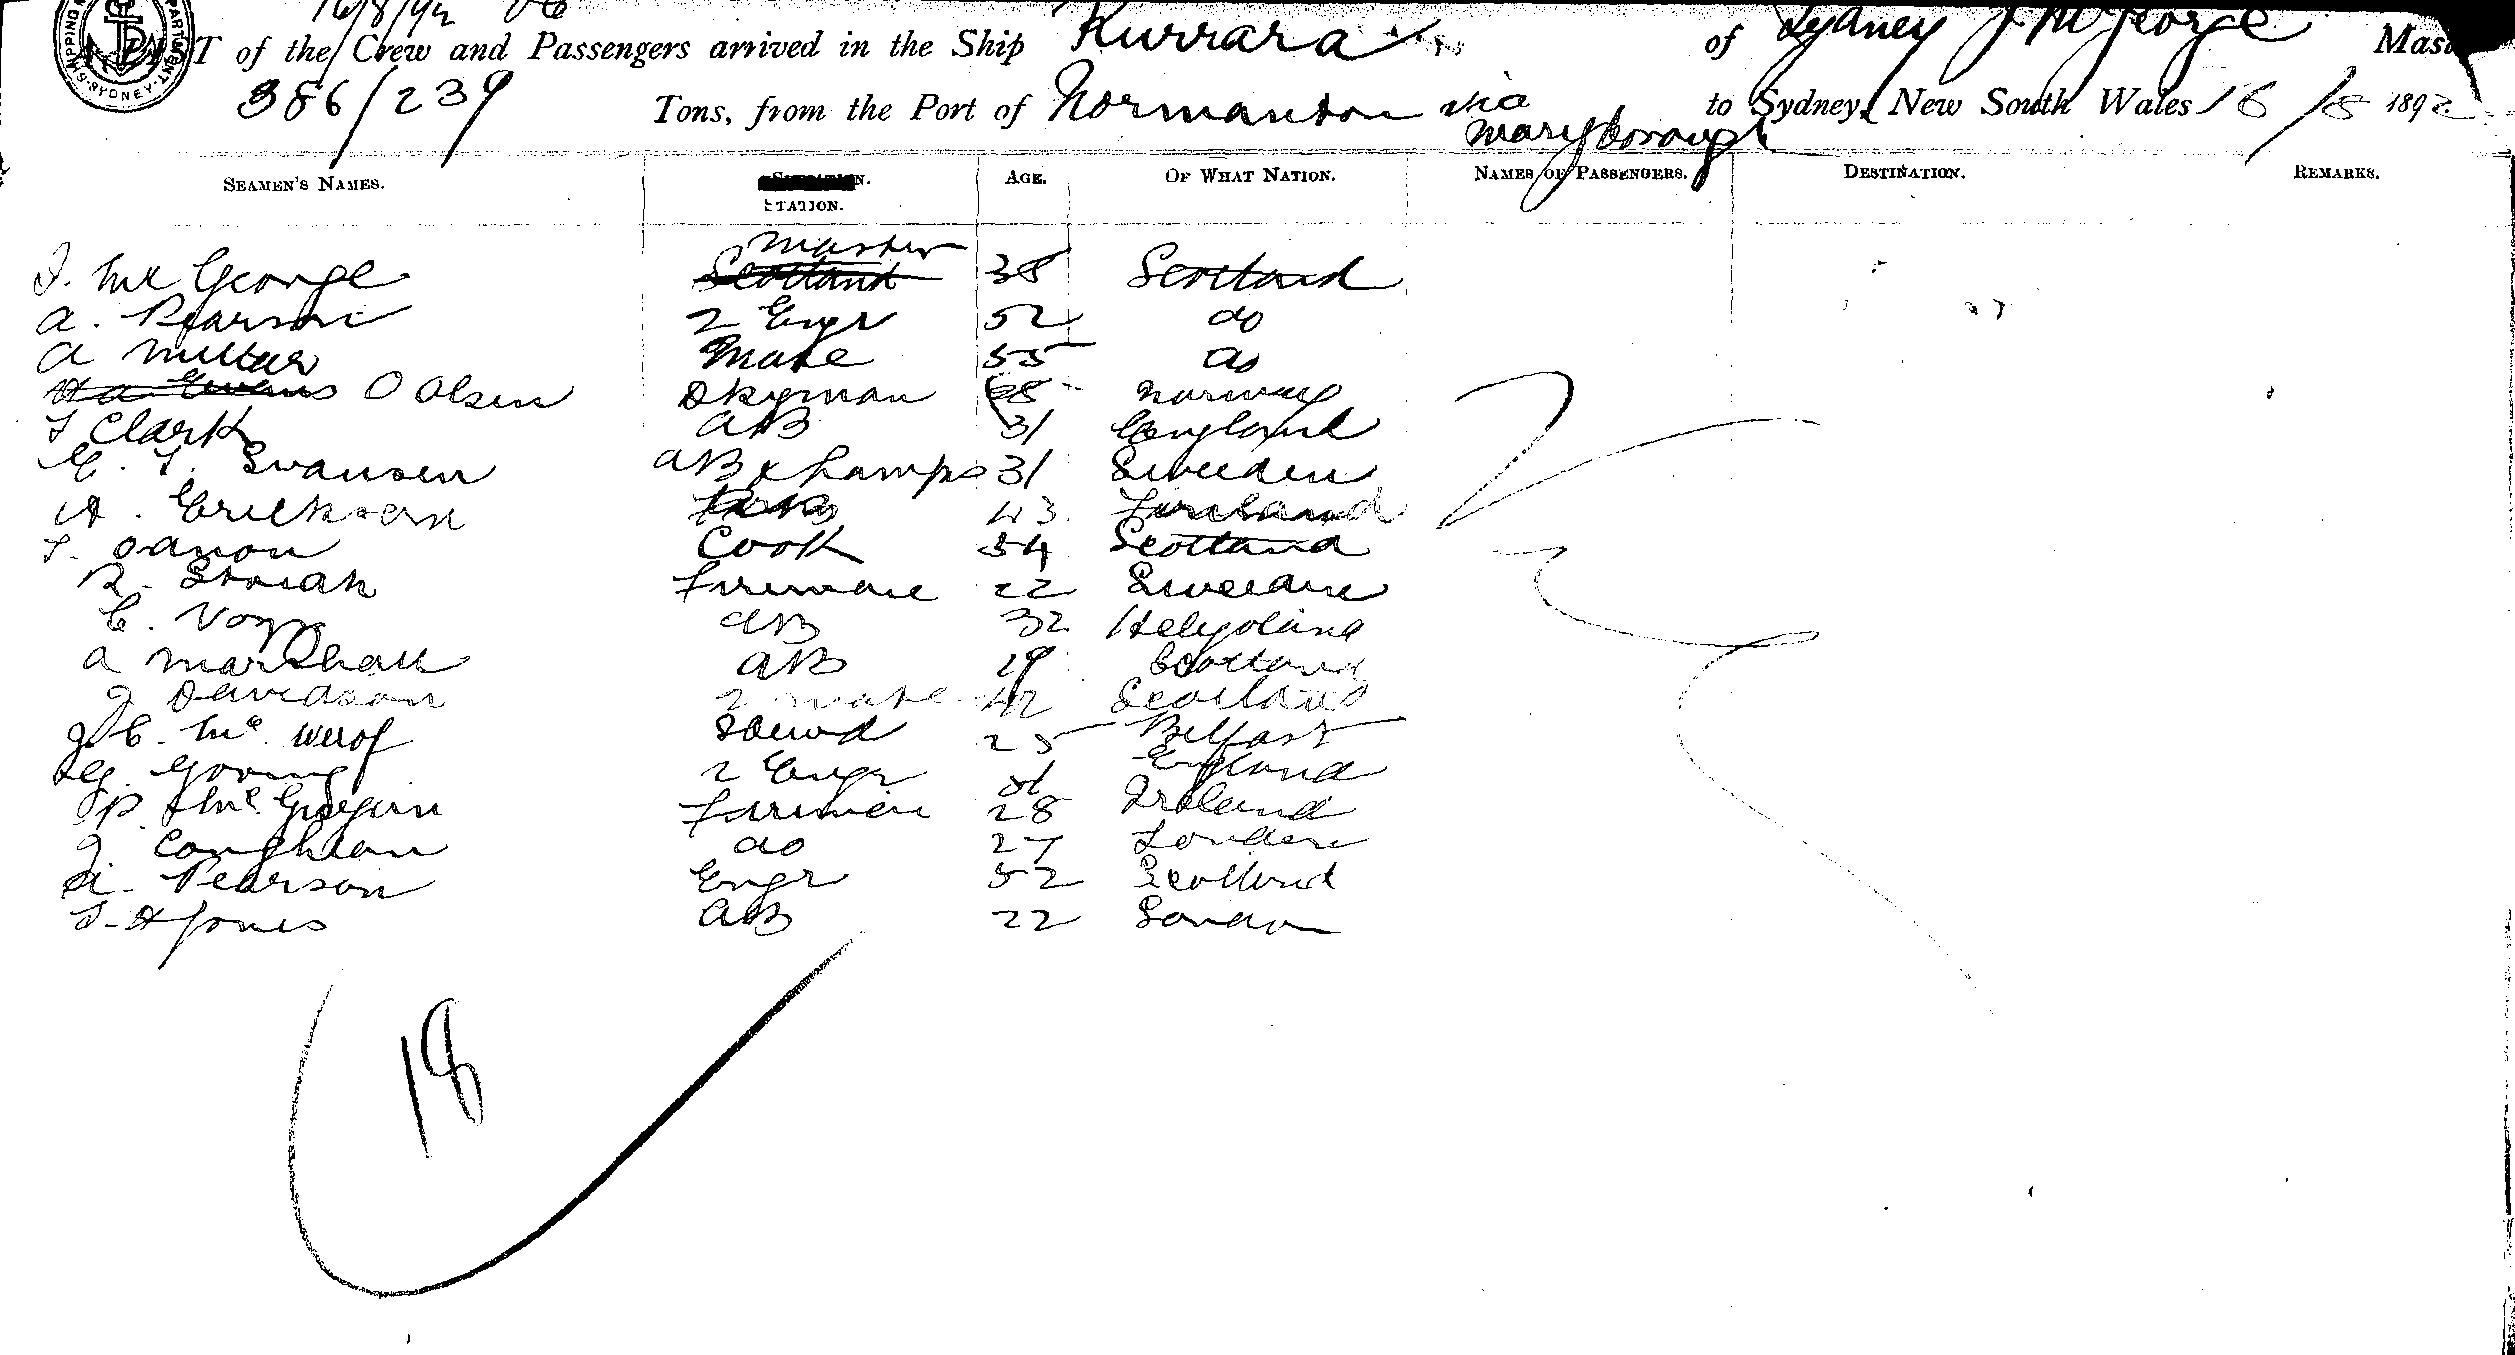 16/8/92
SHIPPING DEPARTMENT SYDNEY
of the Crew and Passengers arrived in the Ship Kurrara of Sydney J McGeorge Mas
386/239 Tons, from the Port of Normanton via Maryborough to Sydney, New South Wales 16/8 1892
SEAMEN'S NAMES. STATION. AGE. OF WHAT NATION. NAMES OF PASSENGERS. DESTINATION. REMARKS.
Master
J. Mc George Scotland 38 Scotland
A. Pearson 2 Engr 52 do
A Millar Mate 55 do
O Olsen Dkyman Norway
T Clark AB 31 England
Swansen AB & Lamps 31 Sweden
A. Erickson 43 Finland
Cook 54 Scotland
Fireman 22 Sweden
C. AB 32 Helgoland
A Marshall AB 29 Scotland
J Davidson 2 mate 42 Scotland
J C. Mc 25 Belfast
2 Engr England
P Firemen 28 Ireland
J. Coughlan do 27 London
A. Pearson Engr 52 Scotland
T. H Jones AB 22 London
18